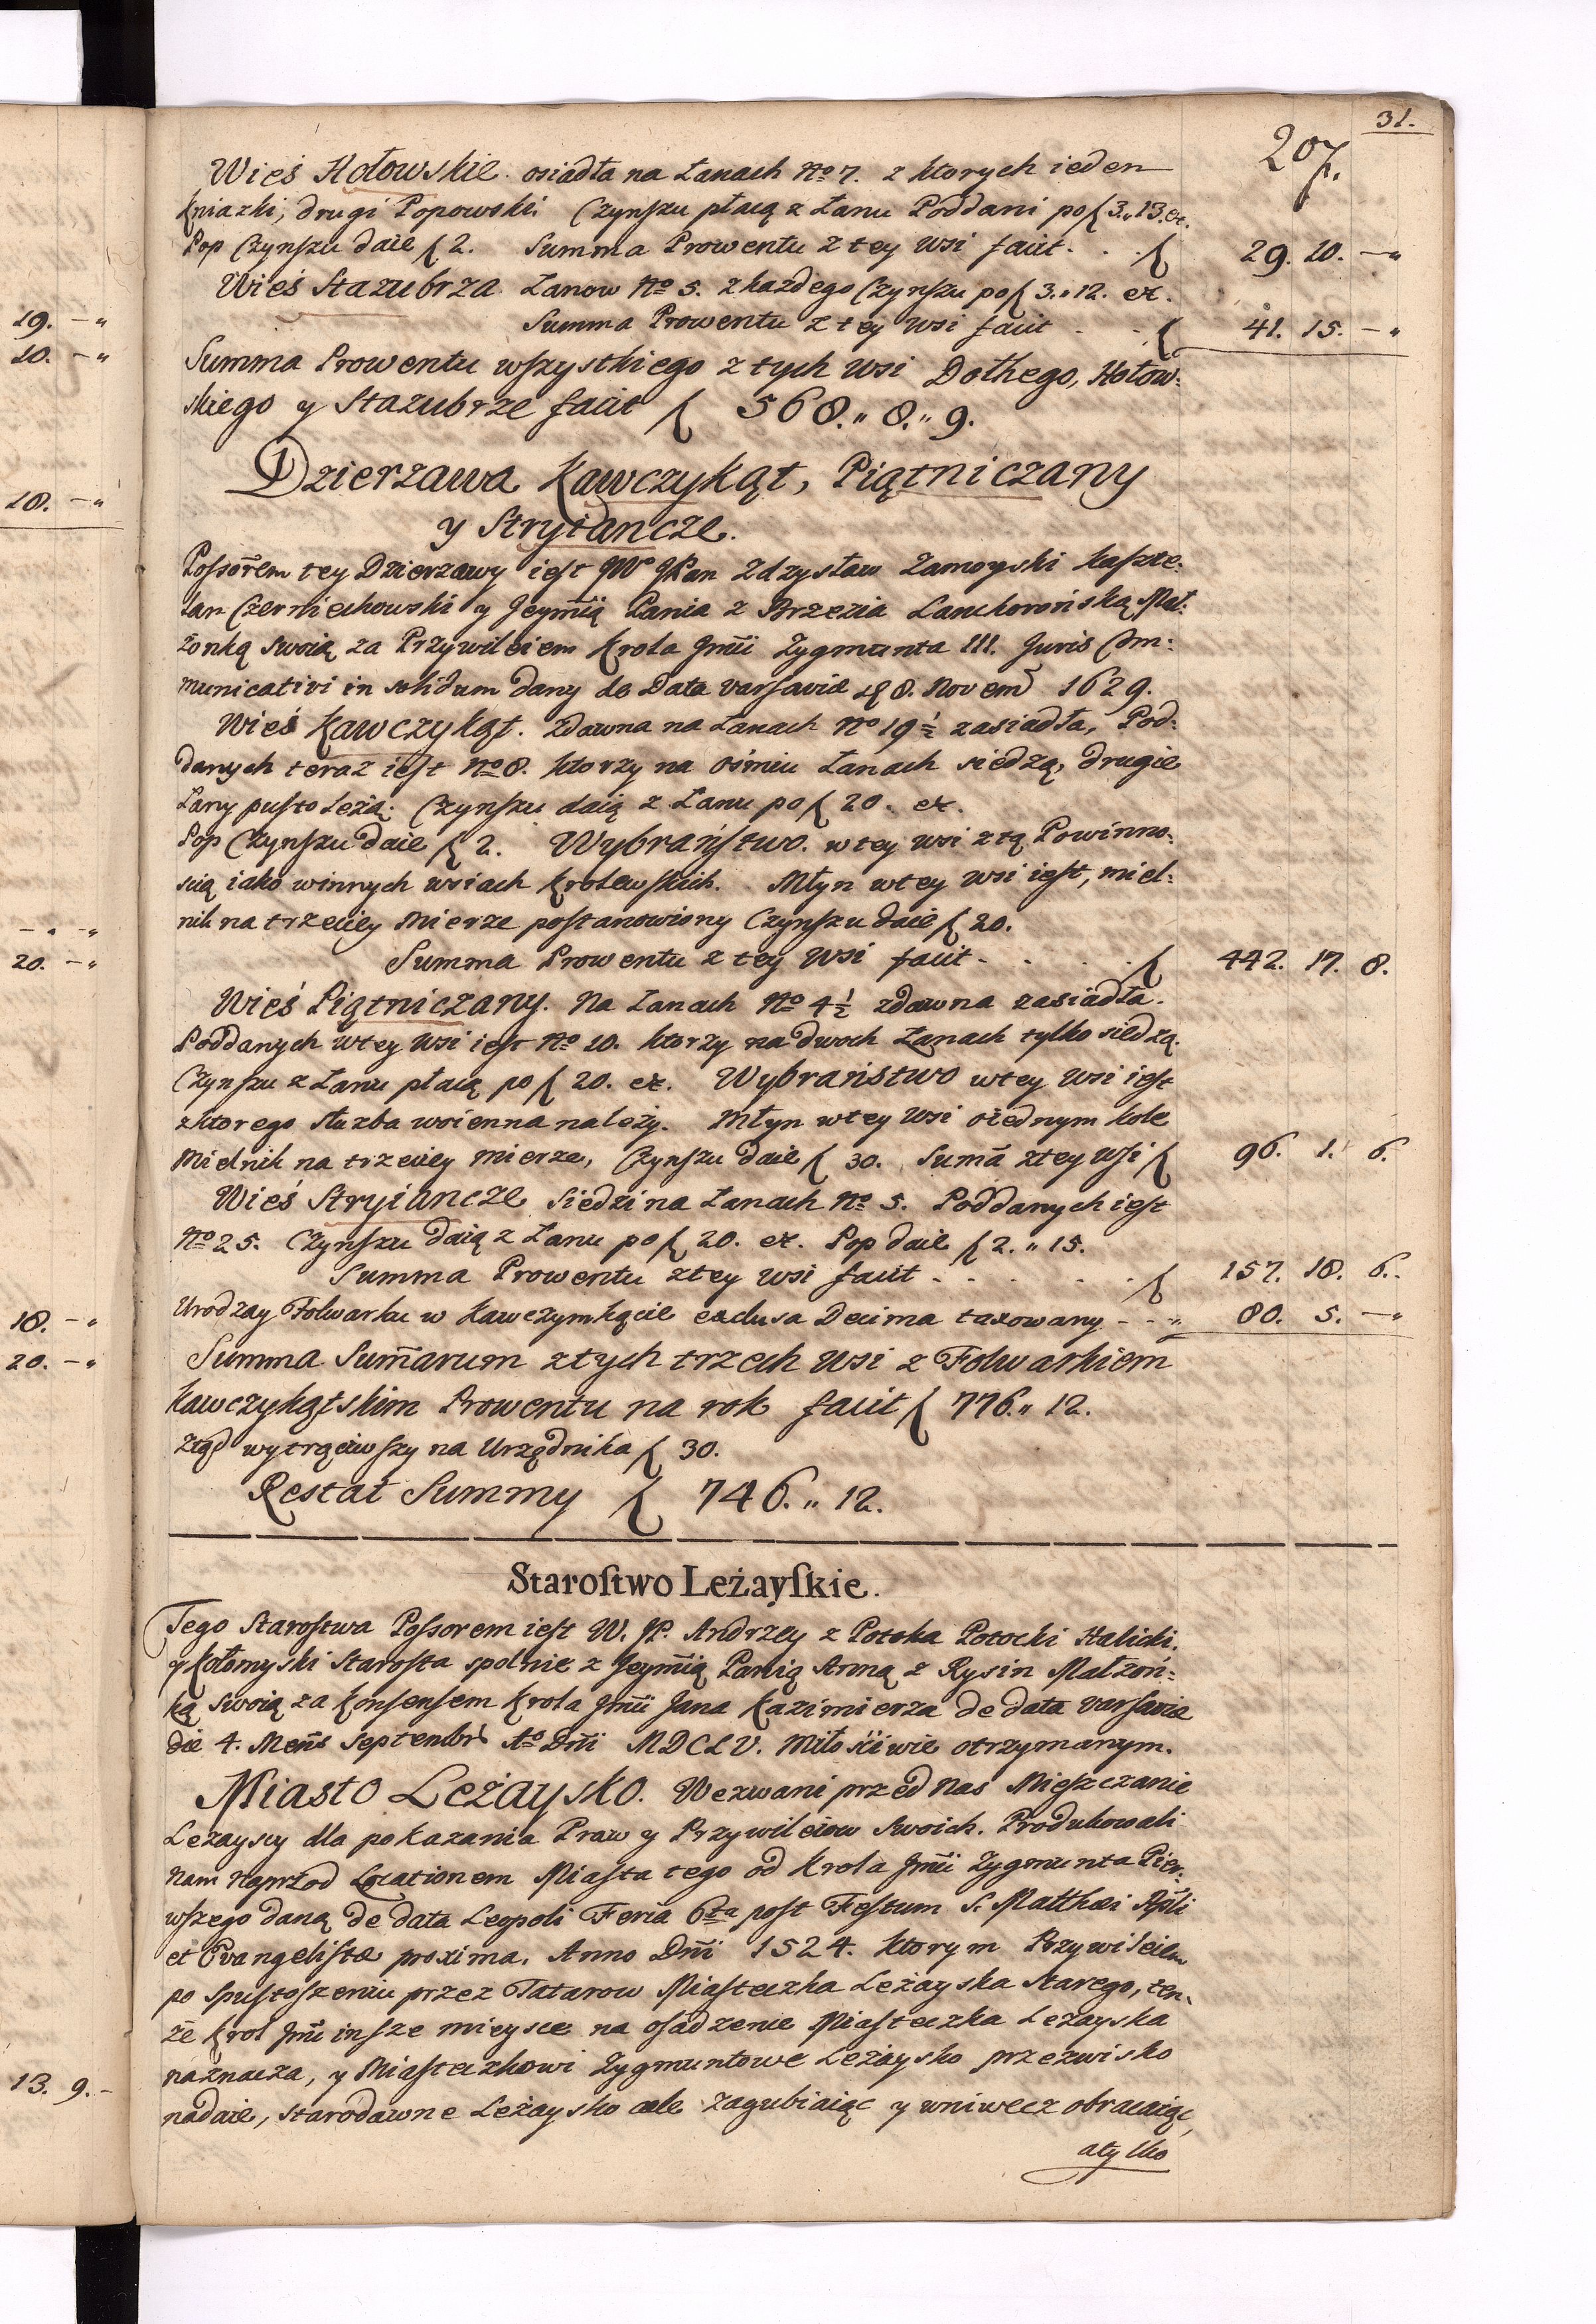 31.
207.
Wieś Hołowskie. osiadła na Łanach No 7. z ktorych ieden
Kniazki, drugi Popowski. Czynszu płacą z Łanu Poddani po f 3.„13. etc.
Pop Czynszu daie f 2. Summa Prowentu z tey wsi facit . . . f 29. 20. —„
Wieś Stazubrza Łanow No 5. z kazdego Czynszu po f 3.„12. etc.
Summa Prowentu z tey wsi facit . . . f 41. 15. —„
Summa Prowentu wszystkiego z tych wsi Dołhego, Hołow:
skiego y Stazubrze facit f 568.„ 8.„ 9.
Dzierzawa Kawczykąt, Piątniczany
y Stryiancze.
Possorem tey Dzierzawy iest JW JPan Zdzysław Zamoyski Kaszte:
lan Czerniechowski y Jeymią Pania z Brzezia Lanckorońską Mał:
żonką swoią za Przywileiem Krola Jmci Zygmunta III. Juris Com:
municativi in solidum dany de Data Varsaviæ 28. Novem 1629.
Wieś Kawczykąt. Zdawna na Łanach No 19½ zasiadła, Pod:
danych teraz iest No 8. ktorzy na ośmiu Łanach siedzą, drugie
Łany pusto Leżą. Czynszu daią z Łanu po f 20. etc.
Pop Czynszu daie f 2. Wybraństwo. w tey wsi z tą Powinno:
scią iako w innych wsiach Krolewskich. Młyn w tey wsi iest, miel:
nik na trzeciey Mierze postanowiony Czynszu daie f 20.
Summa Prowentu z tey Wsi facit . . . . f 442. 17. 8.
Wieś Piątniczany. Na Łanach No 4½ zdawna zasiadła.
Poddanych w tey wsi iest No 10. ktorzy na dwoch Łanach tylko siedzą.
Czynszu z Łanu płacą po f 20. etc. Wybraństwo w tey Wsi iest
z ktorego służba woienna należy. Młyn w tey wsi o iednym kole
Mielnik na trzeciey mierze, Czynszu daie f 30. Suma z tey wsi f 96. 1. 6.
Wieś Stryiancze siedzi na Łanach No 5. Poddanych iest
No 25. Czynszu daią z Łanu po f 20. etc. Pop daie f 2.„15.
Summa Prowentu z tey wsi facit . . . . . f 157. 18. 6.
Urodzay Folwarku w Kawczymkącie exclusa Decima taxowany - - „ 80. 5. —„
Summa Sumarum z tych trzech Wsi z Folwarkiem
Kawczykątskim Prowentu na rok facit f 776.„ 12.
Ztąd wytrąciwszy na Urzędnika f 30.
Restat Summy f 746.„ 12.
Starostwo Leżayskie.
Tego Starostwa Possorem iest W. JP. Andrzey z Potoka Potocki Halicki.
y Kołomyski Starosta spolnie z Jeymią Panią Anną z Rysin Małżoń:
ką swoią za Konsensem Krola Jmci Jana Kazimierza de data Varsavia
die 4. Mens Septembr Ao Dni MDCLV. Miłościwie otrzymanym.
Miasto Leżaysko. Wezwani przed Nas Mieszczanie
Leżayscy dla pokazania Praw y Przywileiow Swoich. Produkowali
Nam Naprzod Locationem Miasta tego od Krola Jmci Zygmunta Pier:
wszego daną de data Leopoli Feria 6ta post Festum S. Matthæi Apli
et Evangelistæ proxima. Anno Dni 1524. ktorym Przywileiem
po spustoszeniu przez Tatarow Miasteczka Leżayska Starego, ten:
że Krol Jmc insze mieysce na osadzenie Miasteczka Leżayska
naznacza, y Miasteczkowi Zygmuntowe Leżaysko przezwisko
nadaie, starodawne Leżaysko cale zagubiaiąc y wniwecz obracaiąc,
a tylko
19. —„
20. —„
18. —„
20. —„
18. —„
20. —„
13. 9. -